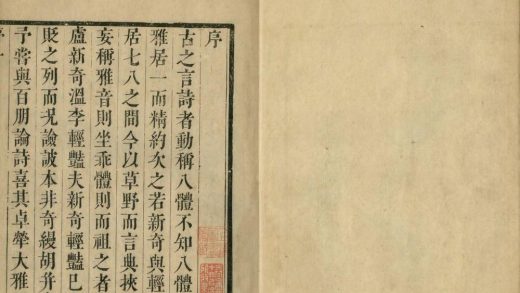 序
古之言詩者動稱八體不知八體
雅居一而精約次之若新奇與輕
居七八之間今以草野而言典挾
妄稱雅音則坐乖體則而祖之者
盧新奇溫李輕豔夫新奇輕豔已
貶之列而況譣詖本非奇縵胡並
予嘗與百朋論詩喜其卓犖大雅